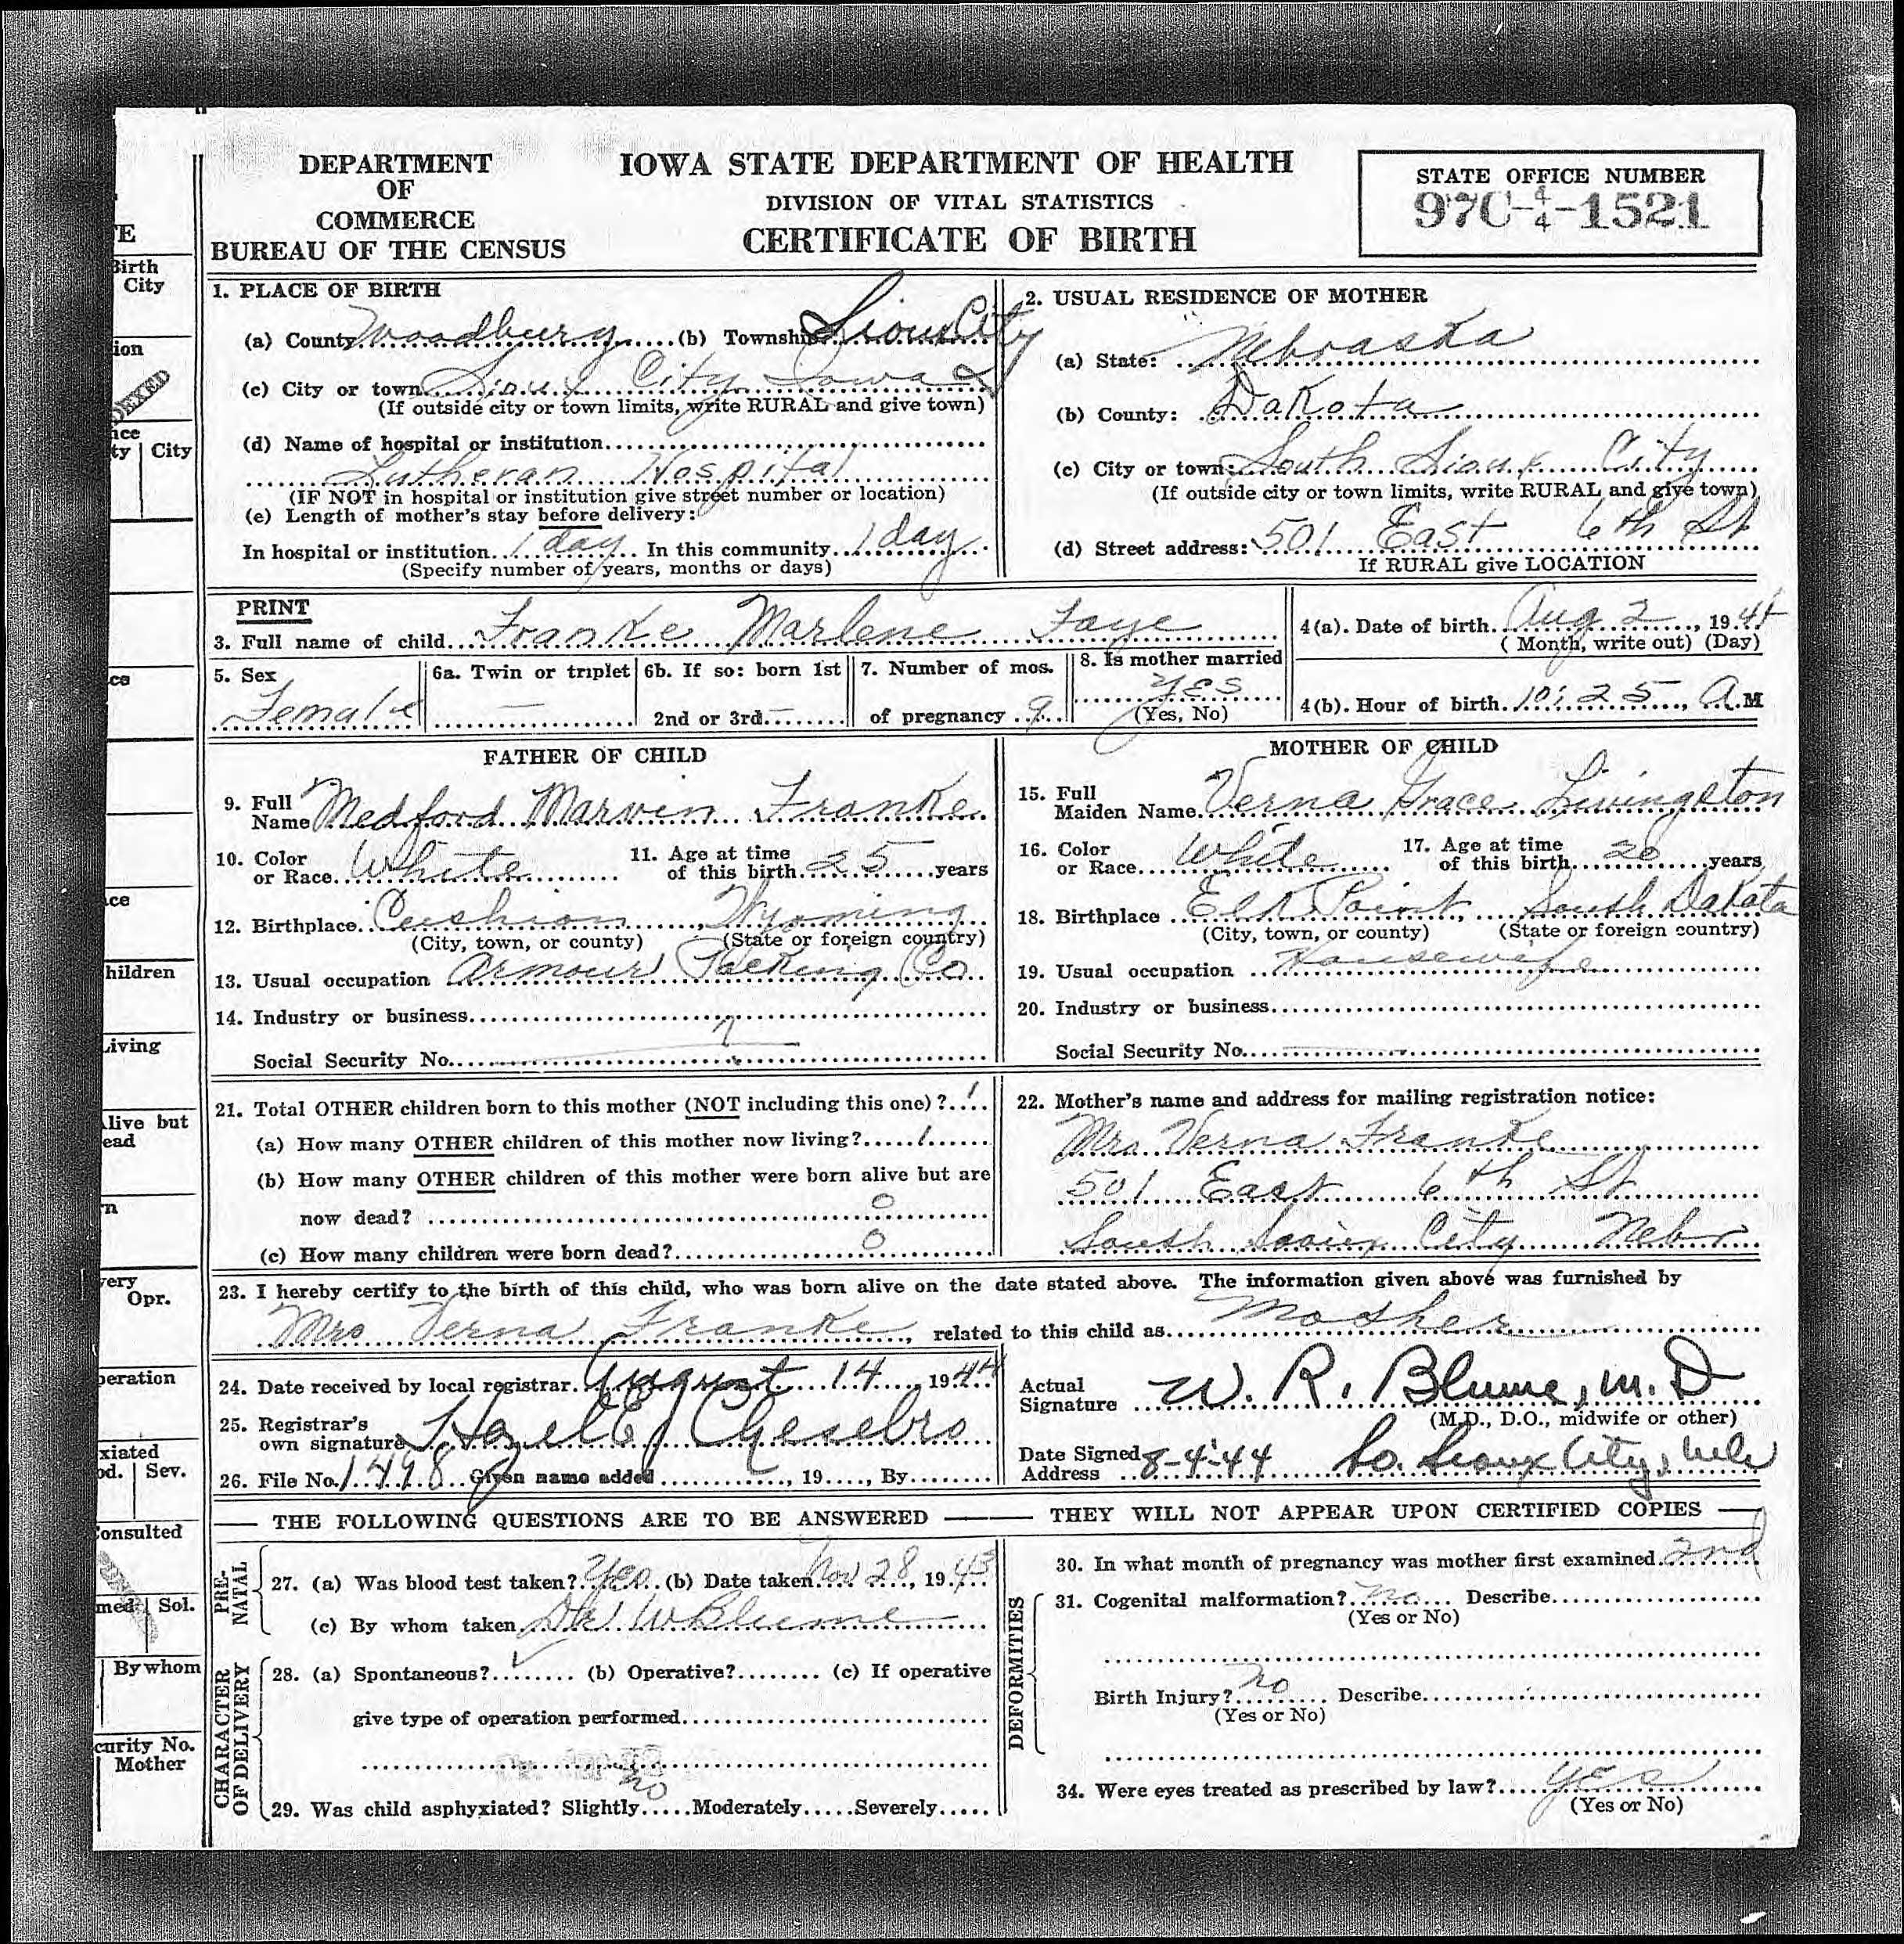 DEPARTMENT
OF
COMMERCE
BUREAU OF THE CENSUS
IOWA STATE DEPARTMENT OF HEALTH
DIVISION OF VITAL STATISTICS
CERTIFICATE OF BIRTH
STATE OFFICE NUMBER
97C-4/4-1521
1. PLACE OF BIRTH
(a) County Woodbury (b) Township Sioux City
(c) City or town Sioux City Iowa
(If outside city or town limits, write RURAL and give town)
(d) Name of hospital or institution
Lutheran Hospital
(IF NOT in hospital or institution give street number or location)
(e) Length of mother's stay before delivery:
In hospital or institution 1 day In this community 1 day
(Specify number of years, months or days)
2. USUAL RESIDENCE OF MOTHER
(a) State: Nebraska
(b) County: Dakota
(c) City or town: South Sioux City
(If outside city or town limits, write RURAL and give town)
(d) Street address: 501 East 6th St
If RURAL give LOCATION
PRINT
3. Full name of child Franke Marlene Faye
4(a). Date of birth Aug 2, 1944
(Month, write out) (Day)
5. Sex
Female
6a. Twin or triplet
—
6b. If so: born 1st
2nd or 3rd —
7. Number of mos.
of pregnancy 9
8. Is mother married
Yes
(Yes, No)
4(b). Hour of birth 10:25, A.M
FATHER OF CHILD
9. Full
Name Medford Marvin Franke
10. Color
or Race White
11. Age at time
of this birth 25 years
12. Birthplace Cushion, Wyoming
(City, town, or county) (State or foreign country)
13. Usual occupation Armour Packing Co
14. Industry or business
Social Security No. ?
MOTHER OF CHILD
15. Full
Maiden Name Verna Grace Livingston
16. Color
or Race White
17. Age at time
of this birth 20 years
18. Birthplace Elk Point, South Dakota
(City, town, or county) (State or foreign country)
19. Usual occupation Housewife
20. Industry or business
Social Security No.
21. Total OTHER children born to this mother (NOT including this one)? 1
(a) How many OTHER children of this mother now living? 1
(b) How many OTHER children of this mother were born alive but are
now dead? 0
(c) How many children were born dead? 0
22. Mother's name and address for mailing registration notice:
Mrs Verna Franke
501 East 6th St
South Sioux City Nebr
23. I hereby certify to the birth of this child, who was born alive on the date stated above. The information given above was furnished by
Mrs Verna Franke, related to this child as Mother
24. Date received by local registrar August 14, 1944
25. Registrar's
own signature Hazel E Chesebro
26. File No. 1498 Given name added, 19, By
Actual
Signature W. R. Blume, M.D
(M.D., D.O., midwife or other)
Date Signed
Address 8-4-44 So. Sioux City, Nebr
THE FOLLOWING QUESTIONS ARE TO BE ANSWERED — THEY WILL NOT APPEAR UPON CERTIFIED COPIES
PRE-
NATAL
27. (a) Was blood test taken? Yes (b) Date taken Nov 28, 1943
(c) By whom taken Dr W Blume
CHARACTER
OF DELIVERY
28. (a) Spontaneous? ✓ (b) Operative? (c) If operative
give type of operation performed
29. Was child asphyxiated? Slightly no Moderately Severely
DEFORMITIES
30. In what month of pregnancy was mother first examined 2nd
31. Cogenital malformation? no Describe
(Yes or No)
Birth Injury? no Describe
(Yes or No)
34. Were eyes treated as prescribed by law? yes
(Yes or No)
TE
Birth
City
ion
DEXED
nce
ty City
ce
ce
hildren
Living
Alive but
ead
n
very
Opr.
peration
xiated
od. Sev.
Consulted
med Sol.
By whom
curity No.
Mother